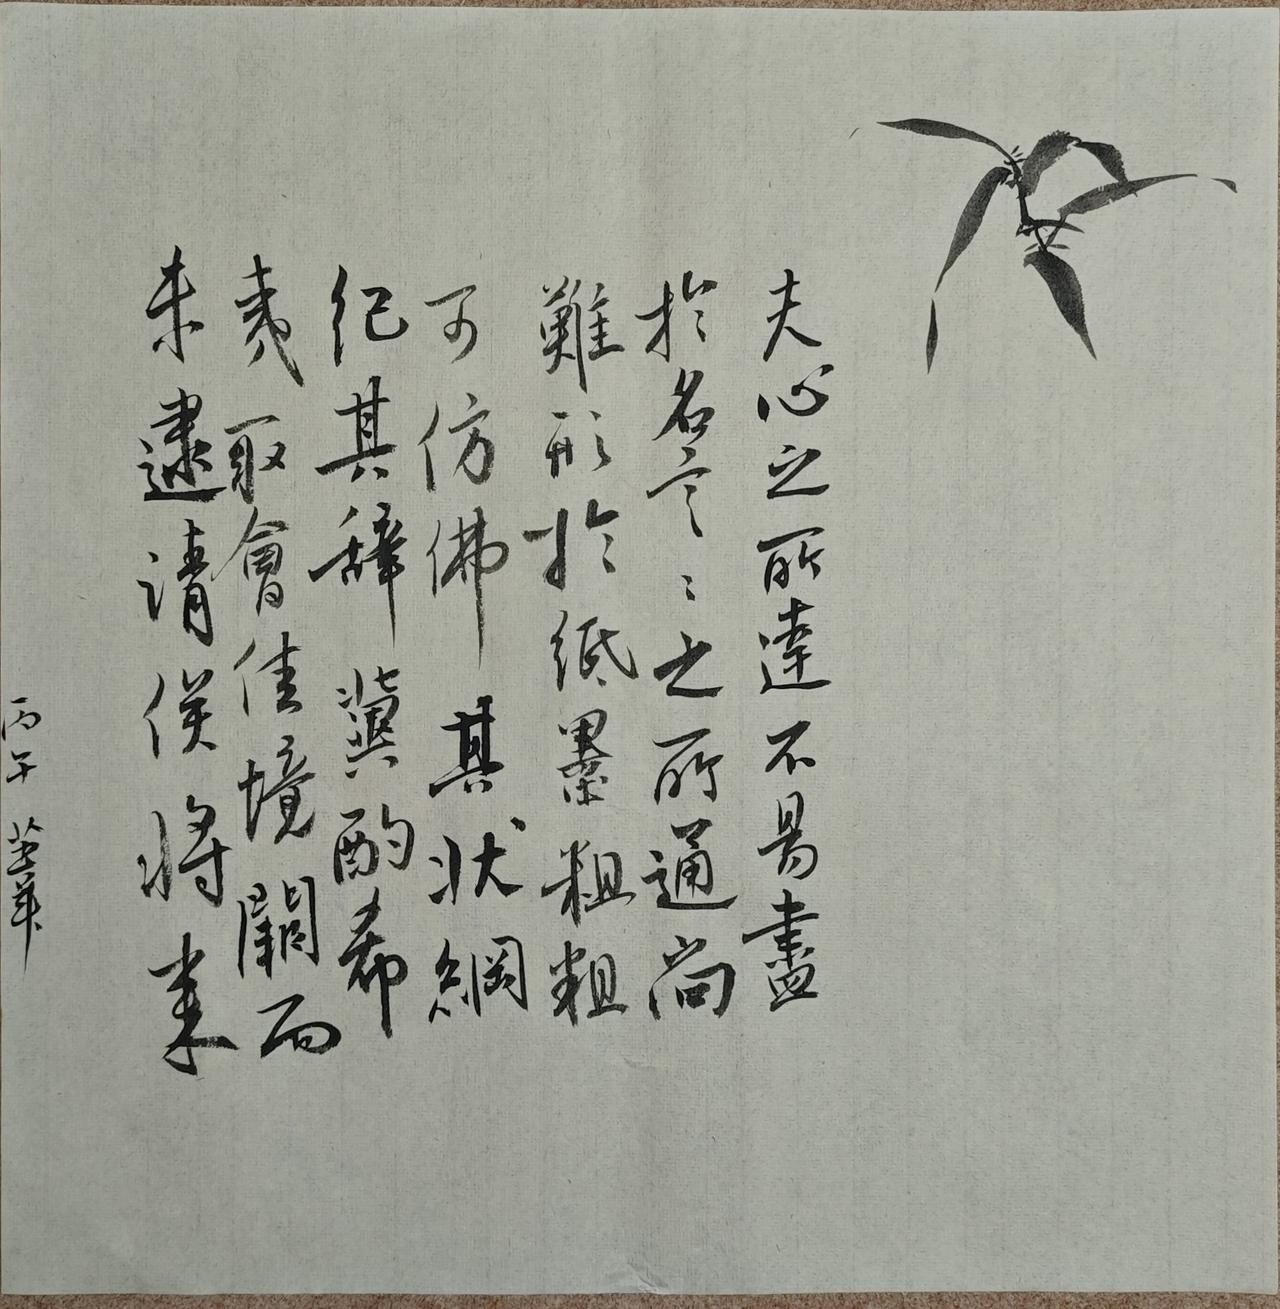 夫心之所達不易盡
於名言〻之所通尚
難形於紙墨粗粗
可仿佛其狀綱
紀其辭冀酌希
夷取會佳境闕而
未逮請俟將來
丙午